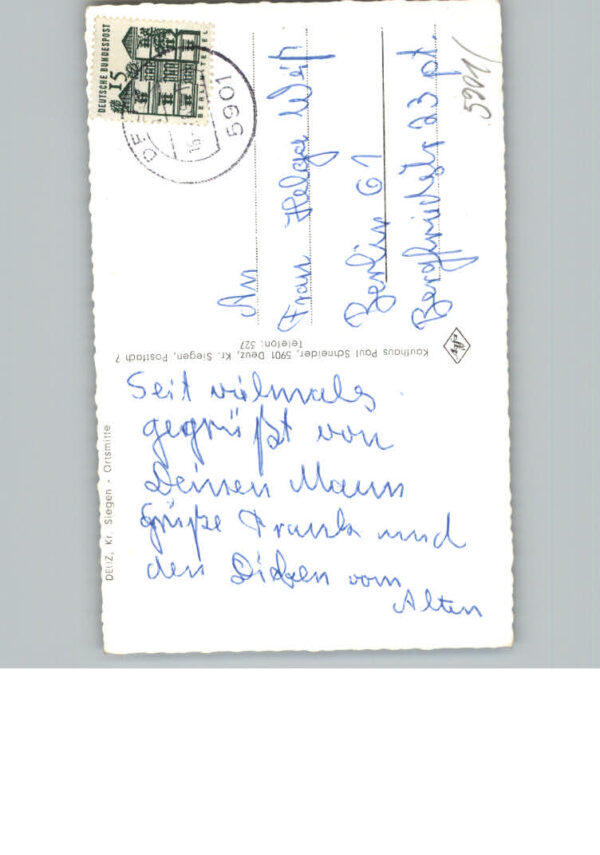 Seit vielmals
gegrüßt von
Deinen Mann
Grüße Frank und
den Dicken vom
Alten
An
Frau Helga Weiß
Berlin 61
Bergfriedstr 23 pt.
5901
DEUTSCHE BUNDESPOST
15
BERLIN TEGEL
5901
Kaufhaus Paul Schneider, 5901 Deuz, Kr. Siegen, Postfach 7
Telefon: 327
DEUZ, Kr. Siegen - Ortsmitte